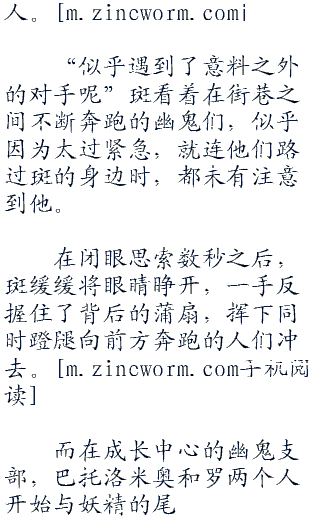 人。[m.zincworm.com]
“似乎遇到了意料之外
的对手呢”斑看着在街巷之
间不断奔跑的幽鬼们，似乎
因为太过紧急，就连他们路
过斑的身边时，都未有注意
到他。
在闭眼思索数秒之后，
斑缓缓将眼睛睁开，一手反
握住了背后的蒲扇，挥下同
时蹬腿向前方奔跑的人们冲
去。[m.zincworm.com手机阅
读]
而在成长中心的幽鬼支
部，巴托洛米奥和罗两个人
开始与妖精的尾